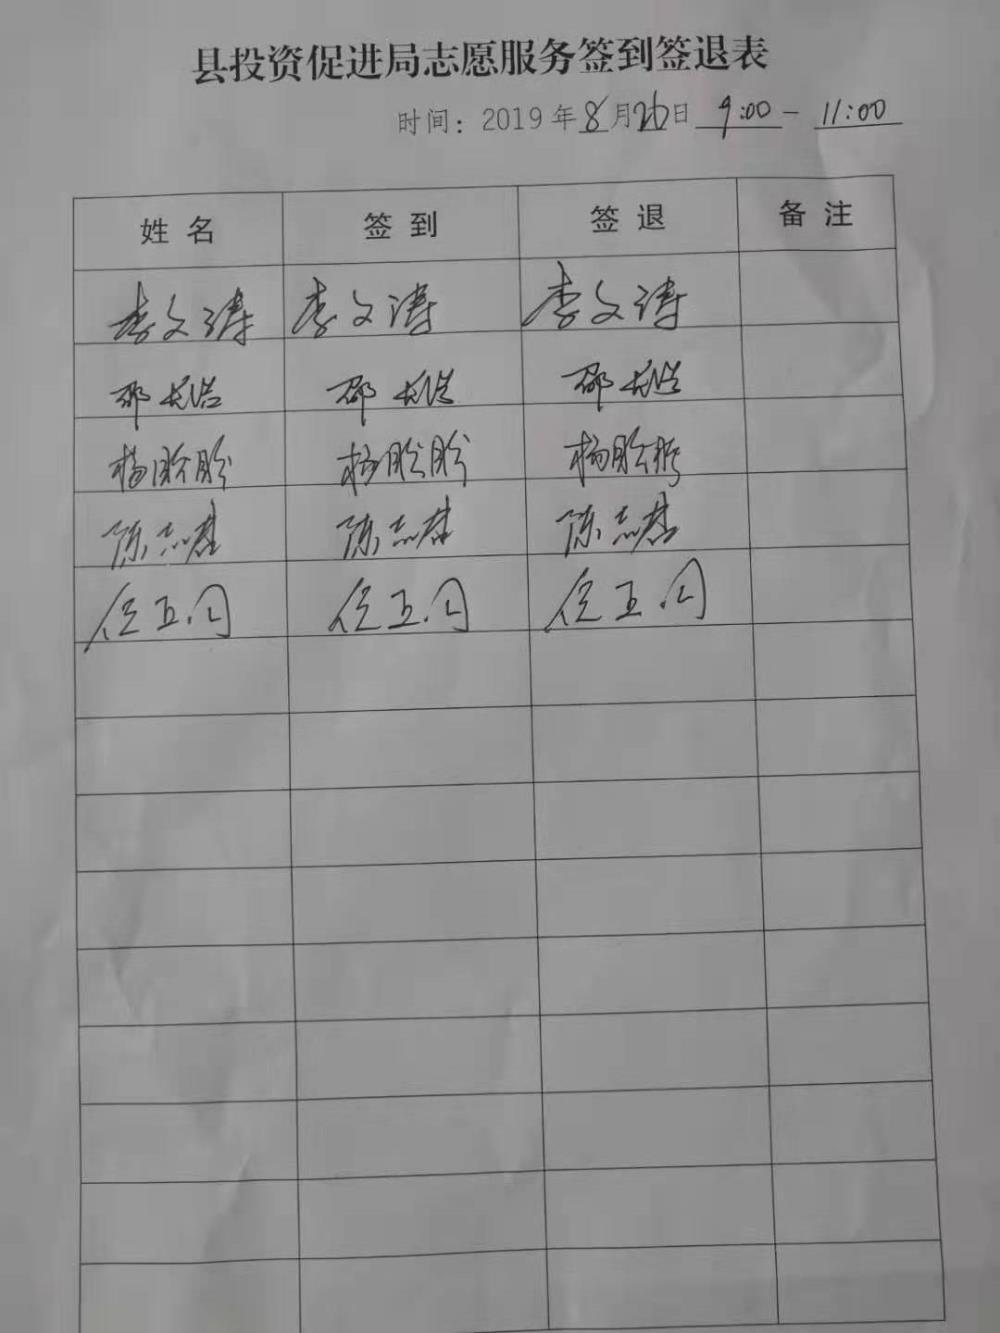 县投资促进局志愿服务签到签退表
时间：2019年8月26日 9:00 - 11:00
姓名 签到 签退 备注
李文涛 李文涛 李文涛
邵长浩 邵长浩 邵长浩
杨盼盼 杨盼盼 杨盼盼
陈志君 陈志君 陈志君